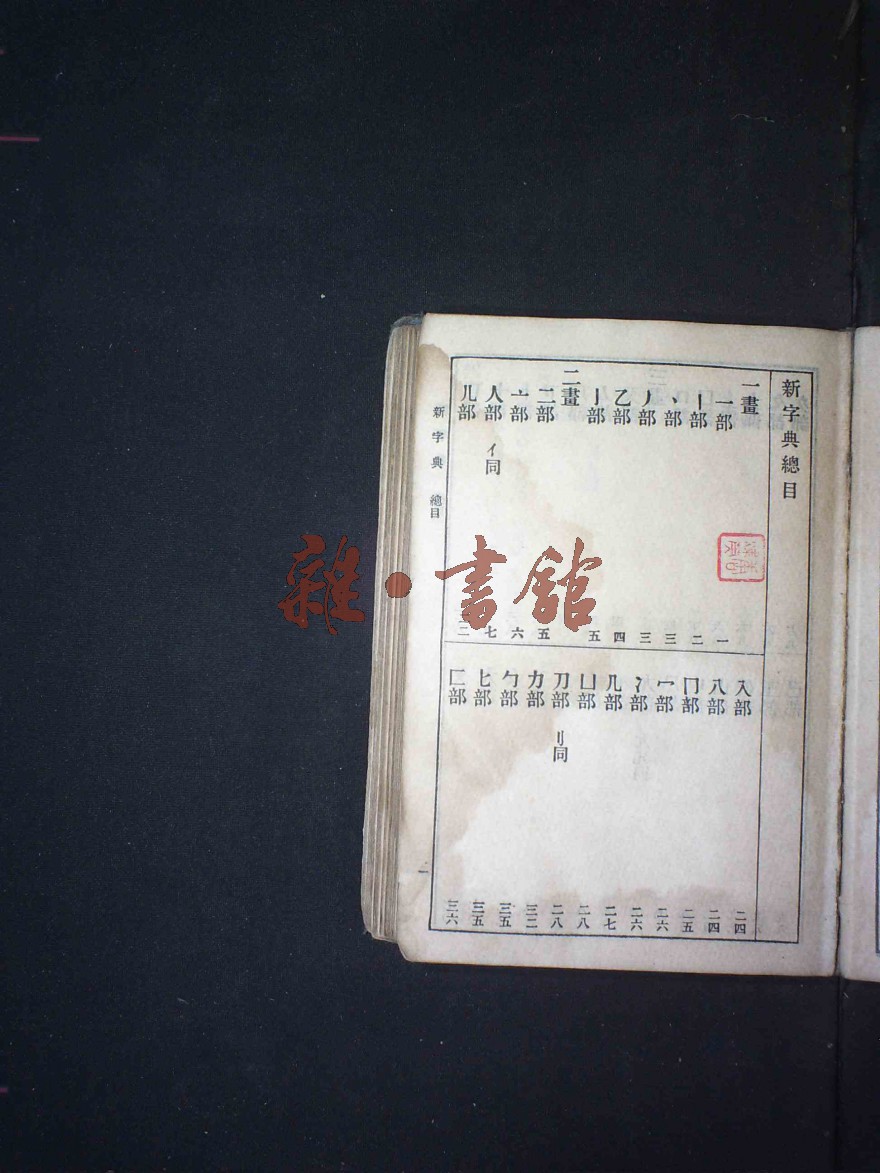 新字典總目
一畫
一部 一
丨部 二
丶部 三
丿部 三
乙部 四
亅部 五
二畫
二部 五
亠部 六
人部 亻同 七
儿部
入部 二四
八部 二四
冂部 二五
冖部 二六
冫部 二六
几部 二七
凵部 二八
刀部 刂同 二八
力部 三二
勹部 三五
匕部 三五
匚部 三六
新字典 總目
一
雜·書館